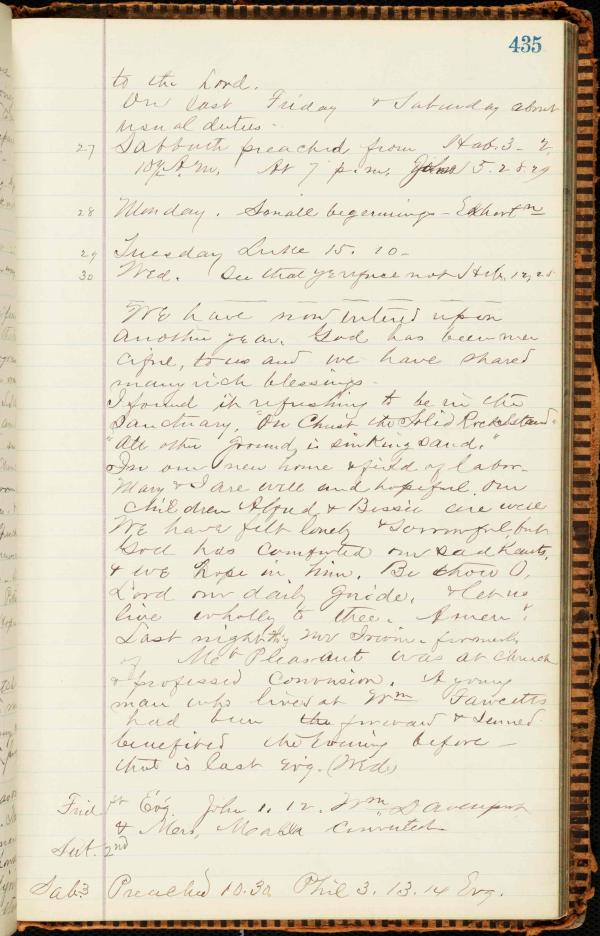 435
to the Lord.
On last Friday & Saturday about
usual duties.
27 Sabbath preached from Hab. 3-2
10½ A.M. At 7 p.m. John 5.28.29
28 Monday. Small beginnings - Exhortn
29 Tuesday Luke 15. 10-
30 Wed. See that ye refuse not Heb. 12, 25
We have now entered upon
another year. God has been mer
ciful, to us and we have shared
many rich blessings.
I found it refreshing to be in the
Sanctuary, "On Christ the Solid Rock I stand"
"All other ground is sinking sand."
In our new home & field of labor
Mary & I are well and hopeful. Our
children Alfred & Bessie are well
We have felt lonely & sorrowful, but
God has comforted our sad hearts,
& we hope in him. Be thou O,
Lord our daily guide, & let us
live wholly to thee. Amen.
Last night Mr Irwin formerly
of Mt Pleasant was at church
& professed conversion. A young
man who lives at Wm Fawcetts
had been the forward & seemed
benefited the evening before -
that is last Evg. (Wed)
Frid. 1st Evg John 1. 12. Wm Davenport
& Mers, converted
Sat. 2nd
Sab. 3 Preached 10.30 Phil 3. 13. 14 Evg.